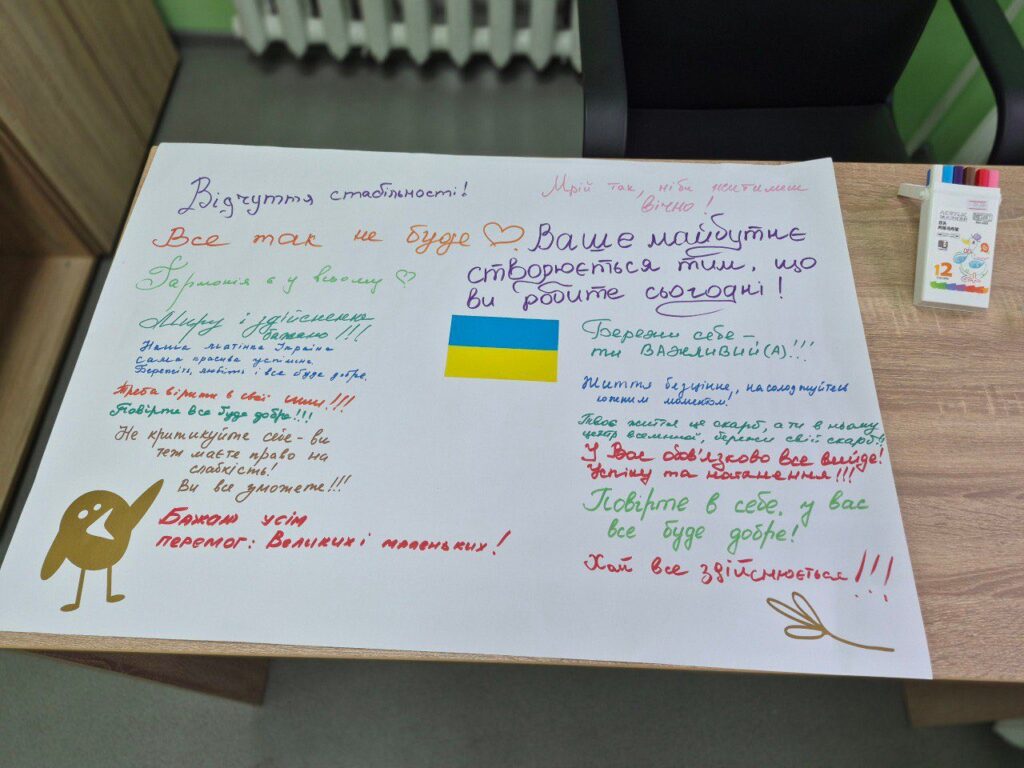 Відчуття стабільності!
Мрій так, ніби житимеш
вічно!
Все так не буде
Ваше майбутнє
створюється тим, що
ви робите сьогодні!
Гармонія є у всьому
Миру і здійснення
бажань!!!
Наша матінка Україна
сама красива успішна
Бережіть, любіть і все буде добре.
Треба вірити в свої сили!!!
Повірте все буде добре!!!
Не критикуйте себе - ви
теж маєте право на
слабкість!
Ви все зможете!!!
Бажаю усім
перемог: Великих і маленьких!
Бережи себе -
ти ВАЖЛИВИЙ(А)!!!
Життя безцінне, насолоджуйтесь
кожним моментом!
Твоє життя це скарб, а ти в ньому
центр вселенної, бережи свій скарб!!
У Вас обов'язково все вийде!
Успіху та натхнення!!!
Повірте в себе, у вас
все буде добре!
Хай все здійснюється!!!
ACRYLIC
MARKER
12